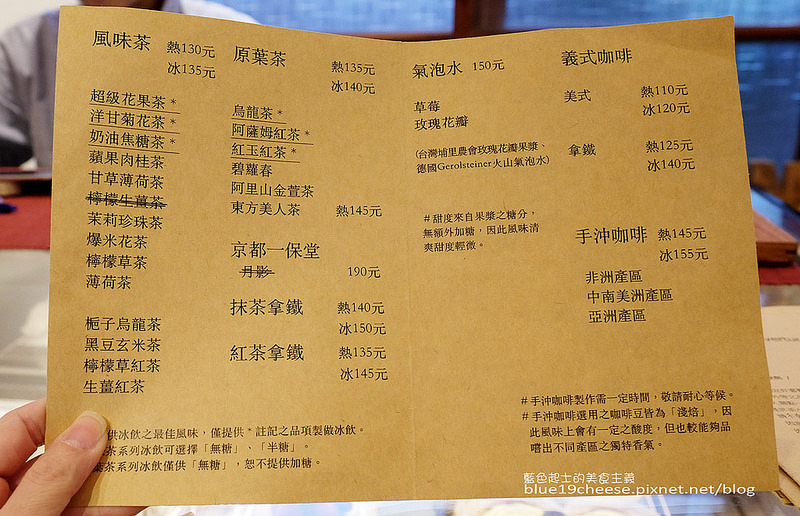 風味茶 熱130元
冰135元
超級花果茶 *
洋甘菊花茶 *
奶油焦糖茶 *
蘋果肉桂茶
甘草薄荷茶
檸檬生薑茶
茉莉珍珠茶
爆米花茶
檸檬草茶
薄荷茶
梔子烏龍茶
黑豆玄米茶
檸檬草紅茶
生薑紅茶
原葉茶 熱135元
冰140元
烏龍茶 *
阿薩姆紅茶 *
紅玉紅茶 *
碧蘿春
阿里山金萱茶
東方美人茶 熱145元
京都一保堂
月影 190元
抹茶拿鐵 熱140元
冰150元
紅茶拿鐵 熱135元
冰145元
供冰飲之最佳風味，僅提供 * 註記之品項製做冰飲。
茶系列冰飲可選擇「無糖」、「半糖」。
茶系列冰飲僅供「無糖」，恕不提供加糖。
氣泡水 150元
草莓
玫瑰花瓣
(台灣埔里農會玫瑰花瓣果漿、
德國Gerolsteiner火山氣泡水)
#甜度來自果漿之糖分，
無額外加糖，因此風味清
爽甜度輕微。
義式咖啡
美式 熱110元
冰120元
拿鐵 熱125元
冰140元
手沖咖啡 熱145元
冰155元
非洲產區
中南美洲產區
亞洲產區
#手沖咖啡製作需一定時間，敬請耐心等候。
#手沖咖啡選用之咖啡豆皆為「淺焙」，因
此風味上會有一定之酸度，但也較能夠品
嚐出不同產區之獨特香氣。
藍色起士的美食主義
blue19cheese.pixnet.net/blog